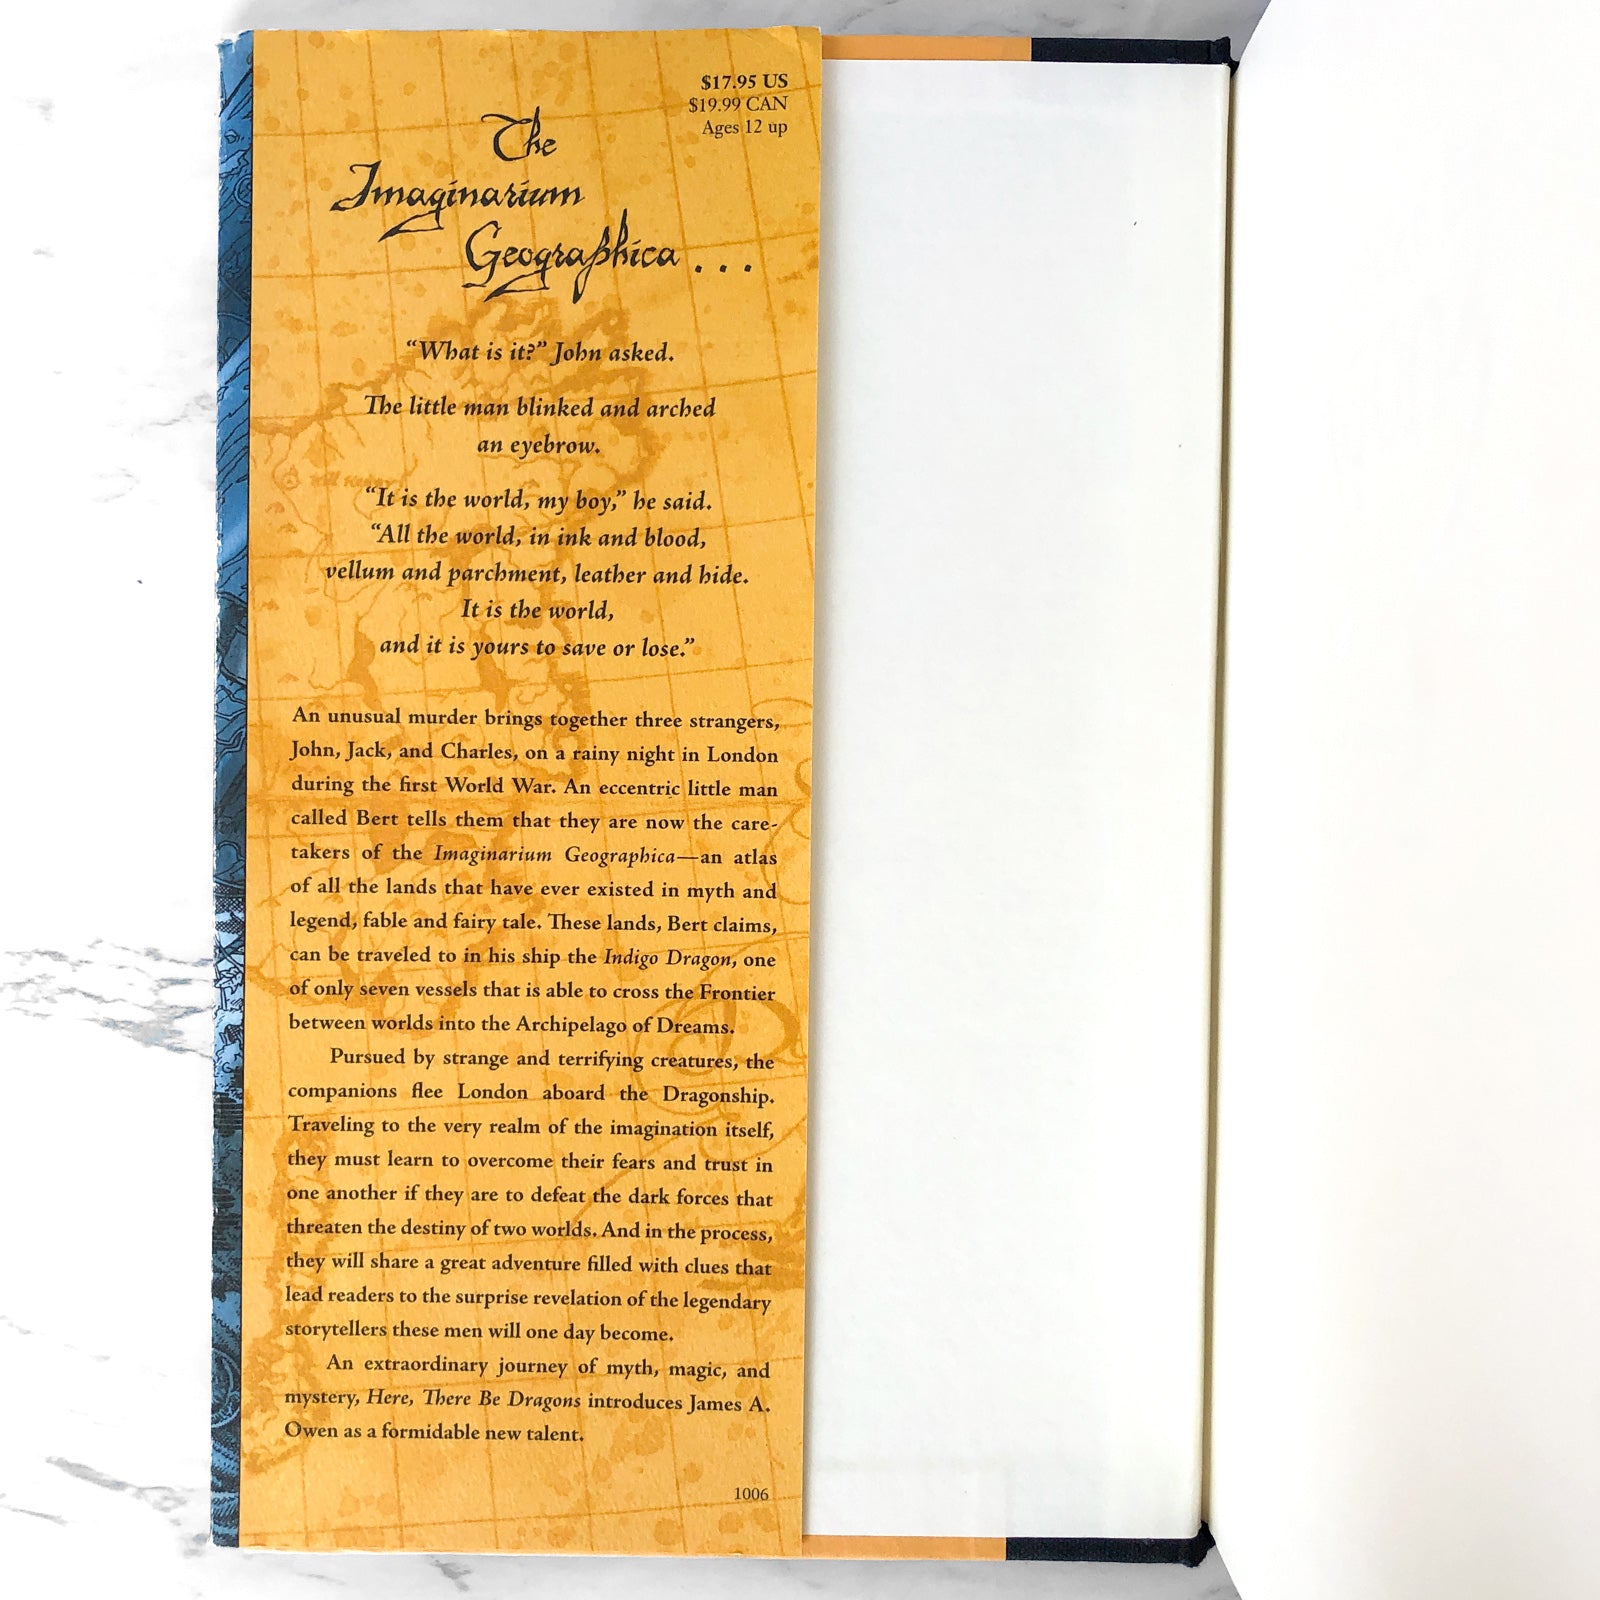 $17.95 US
$19.99 CAN
Ages 12 up
The
Imaginarium
Geographica . . .
“What is it?” John asked.
The little man blinked and arched
an eyebrow.
“It is the world, my boy,” he said.
“All the world, in ink and blood,
vellum and parchment, leather and hide.
It is the world,
and it is yours to save or lose.”
An unusual murder brings together three strangers,
John, Jack, and Charles, on a rainy night in London
during the first World War. An eccentric little man
called Bert tells them that they are now the care-
takers of the Imaginarium Geographica—an atlas
of all the lands that have ever existed in myth and
legend, fable and fairy tale. These lands, Bert claims,
can be traveled to in his ship the Indigo Dragon, one
of only seven vessels that is able to cross the Frontier
between worlds into the Archipelago of Dreams.
Pursued by strange and terrifying creatures, the
companions flee London aboard the Dragonship.
Traveling to the very realm of the imagination itself,
they must learn to overcome their fears and trust in
one another if they are to defeat the dark forces that
threaten the destiny of two worlds. And in the process,
they will share a great adventure filled with clues that
lead readers to the surprise revelation of the legendary
storytellers these men will one day become.
An extraordinary journey of myth, magic, and
mystery, Here, There Be Dragons introduces James A.
Owen as a formidable new talent.
1006